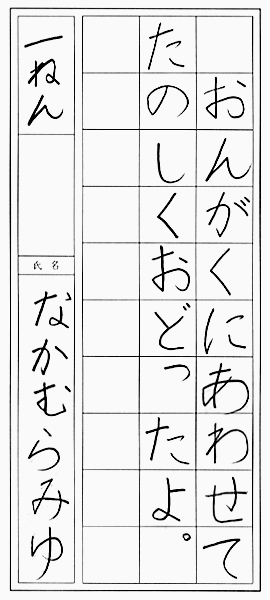 おんがくにあわせて
たのしくおどったよ。
一ねん
氏名
なかむらみゆ